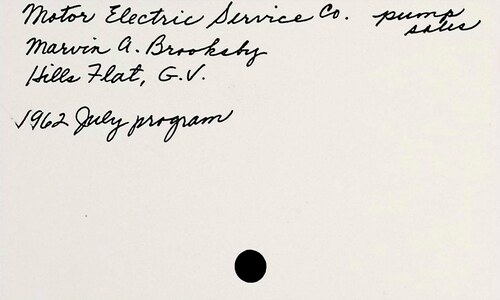 Motor Electric Service Co. pump sales
Marvin A. Brooksby
Hills Flat, G.V.
1962 July program